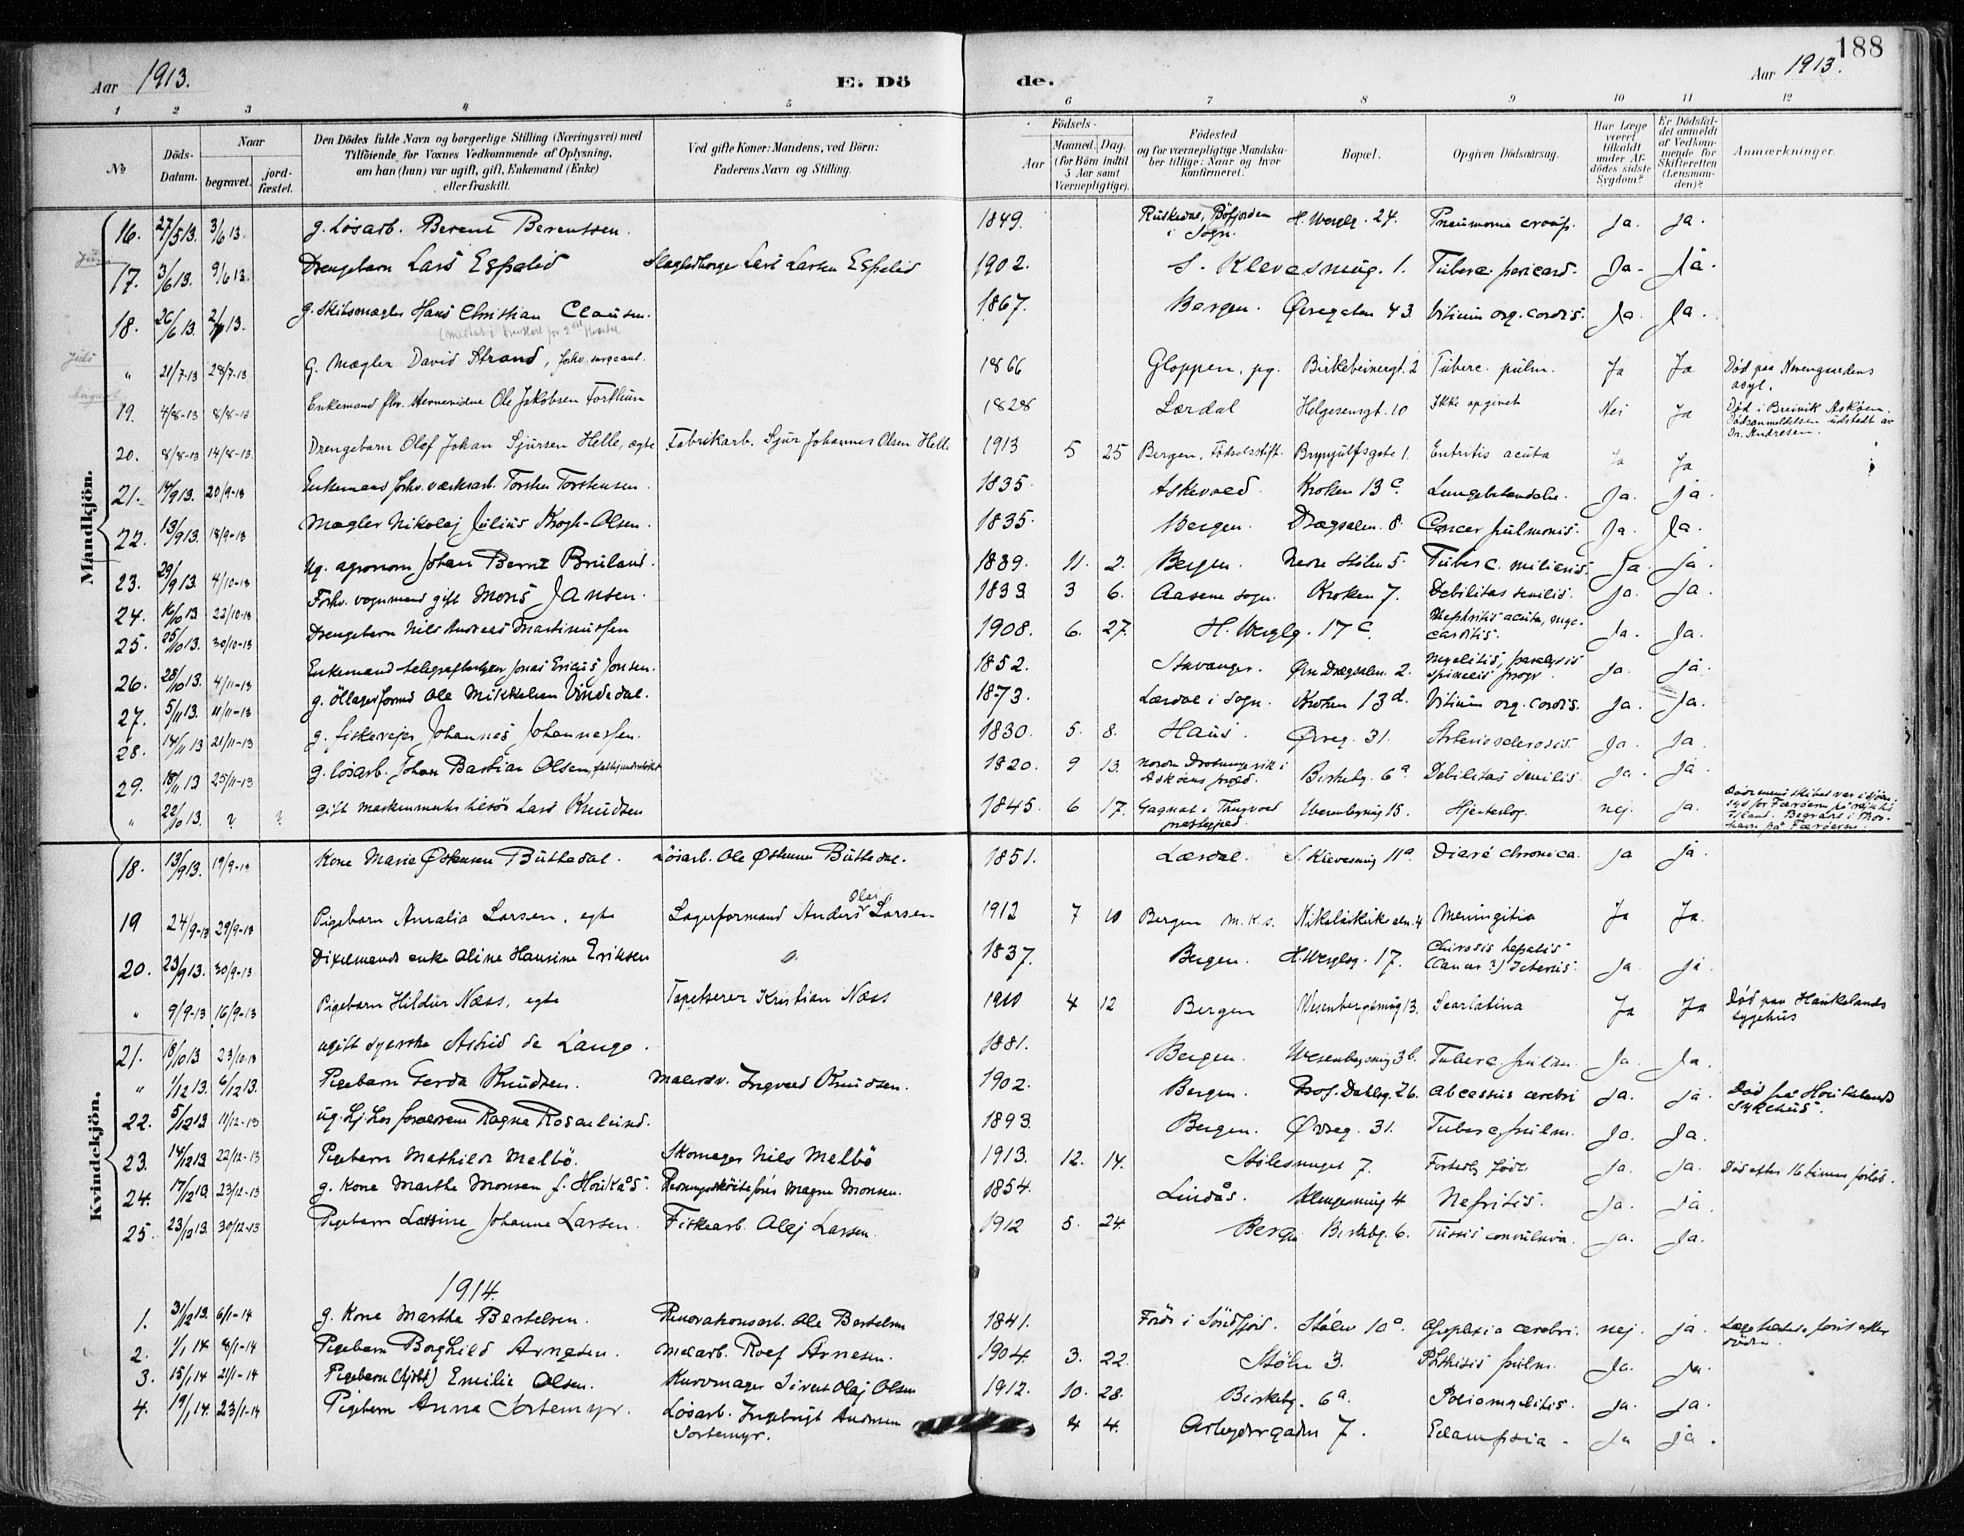 188
Aar 1913. E. Dö de. Aar 1913.
1 2 3 4 5 6 7 8 9 10 11 12
No
Döds-Datum.
Naar begravet. jord-fæstet.
Den Dödes fulde Navn og borgerlige Stilling (Næringsvei) med Tilföiende for Voxnes Vedkommende af Oplysning, om han (hun) var ugift, gift, Enkemand (Enke) eller fraskilt.
Ved gifte Koner: Mandens, ved Börn: Faderens Navn og Stilling.
Födsels-
Aar Maaned. Dag. (for Börn indtil 5 Aar samt Værnepligtige).
Födested og for værnepligtige Mandskaber tillige: Naar og hvor konfirmeret.
Bopæl.
Opgiven Dödsaarsag.
Har Læge været tilkaldt under Afdödes sidste Sygdom?
Er Dödsfaldet anmeldt af Vedkommende for Skifteretten (Lensmanden)?
Anmærkninger.
Mandkjön.
16. 27/5 13. 3/6 13. g. Løsarb. Berent Berentsen. 1849. i Sogn. H. Wergelg. 24. Pneumonia croup. Ja. Ja.
17. 3/6 13. 9/6 13. Drengebarn Lars Espelid Lars Larsen Espelid 1902. S. Klevesmug. 1. Tuberc. pericard. Ja. Ja.
18. 26/6 13. 13. g. Skibsmægler Hans Christian Clausen. 1867. Bergen. Øvregaten 43. Vitium org. cordis. Ja. Ja.
" 21/7-13 28/7-13 G. Mægler David Strand, forhv. sergeant. 1866 Gloppen. pg. Birkebeinergt. 2 Tuberc. pulm. Ja Ja Død paa Nevengaardens asyl.
19. 4/8-13 8/8-13 Enkemand Ole Jakobsen 1828 Lærdal Helgesensgt. 10 Ikke opgivet Nei Ja Død i Breivik Askøen. Dødsanmeldelsen udstedt av Dr. Andresen.
20. 8/8-13 14/8-13. Drengebarn Olaf Johan Sjursen Helle, ægte Fabrikarb. Sjur Johannes Olsen Helle 1913 5 25 Bergen. Fødselsstift. Brynjulfsgate 1. Entritis acuta Ja Ja
21. 14/9 13. 20/9-13 Enkemand forhv. værksarb. Torsten Torstensen. 1835. Askevold. Kroken 13c. Lungebetændelse. Ja. Ja.
22. 13/9 13. 18/9-13 Mægler Nikolaj Julius Krogh-Olsen. 1835. Bergen. Drægsalm. 8. Cancer pulmonis. Ja. Ja.
23. 29/9 13. 4/10-13 Ug. agronom Johan Bernt Bruland. 1889. 11. 2. Bergen. Nedre Stølen 5. Tuberc. miliaris. Ja. Ja.
24. 16/10 13 22/10-13 Forhv. vognmand gift Mons Jansen. 1833 3 6. Aasene sogn. Kroken 7. Debilitas senilis. Ja. Ja.
25. 25/10 13. 30/10-13 Drengebarn Nils Andreas Martinussen 1908. 6. 27. H. Wergelg. 17c. Nephritis acuta, myocarditis. Ja. Ja.
26. 28/10 13. 4/11-13 Enkemand Jonas Ericus Jonsen. 1852. Stavanger. Øvre Drægsalm. 2. Myelitis, paralysis spinalis progr. Ja. Ja.
27. 5/11 13. 11/11-13 g. Ole Mikkelsen Vindedal. 1873. Lærdal i Sogn. Kroken 13d. Vitium org. cordis. Ja. Ja.
28. 14/11 13 21/11-13 g. fiskevejer Johannes Johannessen. 1830. 5. 8. Haus. Øvreg. 31. Arteriosclerosis. Ja. Ja.
29. 18/11 13 25/11-13 g. løsarb. Johan Bastian Olsen, 1820. 9 13. Askøens prgld. Birkebg. 6a. Debilitas senilis. Ja. Ja.
" 22/10 13. ? ? gift Lars Knudsen 1845. 6 17. præstegjeld. 15. Hjerteslag. nej. Ja.
Kvindekjön.
18. 13/9 13. 19/9-13 Kone Marie Østensen Buthedal. Løsarb. Ole Østensen Buthedal. 1851. Lærdal. S. Klevesmug 11a. Diaré chronica. Ja Ja
19 24/9-13 29/9-13 Pigebarn Amalia Larsen, egte Lagerformand Anders Olai Larsen 1912 7 10 Bergen m.k.s. 4 Meningitis Ja Ja.
20. 23/9 13. 30/9-13 enke Aline Hansine Eriksen 1837. Bergen. H. Wergelsg. 17. Chirosis hepatis (Cancer?) Icterus. Ja. Ja.
" 9/9-13 16/9-13 Pigebarn Hildur Næss, egte Tapetserer Kristian Næss 1910 4 12 Bergen Wesenbergsmug 13. Scarlatina Ja Ja Død paa Haukelands sygehus
21. 18/10 13 23/10-13 ugift syerske Astrid de Lange. 1881. Bergen. Wesenbergsmug 3b. Tuberc. pulm. Ja. Ja.
" 1/12 13. 6/12 13. Pigebarn Gerda Knudsen. Malersv. Ingvald Knudsen. 1902. Bergen. Prof. Dahlsg. 26. Abcessus cerebri Ja. Ja. Død på Haukelands Sykehus.
22. 5/12 13 11/12-13 ug. Ragna Rosenlund. 1893. Bergen. Øvreg. 31. Tuberc. pulm. Ja. Ja.
23. 14/12 13 22/12-13 Pigebarn Mathilde Melbö. Skomager Nils Melbö 1913. 12. 14. Stølesmuget 7. Fortidlig født Ja. Ja. Død efter 16 timers forløb.
24. 17/12 13. 23/12-13 g. Kone Marthe Monsen f. Haukås. Magne Monsen. 1854. Lindås. Klengesmug 4 Nefritis. Ja. Ja.
25. 23/12 13. 30/12-13 Pigebarn Lassine Johanne Larsen. Fiskearb. Olaj Larsen. 1912 5. 24. Bergen Birkebg. 6. Tussis convulsiva. Ja. Ja.
1914.
1. 31/12 13. 6/1-14 g. Kone Marthe Bertelsen. Renovationsarb. Ole Bertelsen 1841. Förde i Söndfjord. Stølen 10a. Apoplexia cerebri. nej. Ja. Læge først efter döden.
2. 1/1 14 8/1-14 Pigebarn Borghild Arnesen. Arnesen. 1904. 3. 22. Stølen 3. Phthisis pulm. Ja. Ja.
3. 15/1 14 21/1-14 Pigebarn Emilie Olsen. Kurvmager Sivert Olaj Olsen 1912. 10. 28. Birkebg. 6a. Poliomyelitis. Ja. Ja.
4. 19/1 14. 23/1-14 Pigebarn Anna Sortemyr. Løsarb. Ingebrigt Andersen Sortemyr. 4 4. Arbejdergaden 7. Eclampsia. Ja Ja.